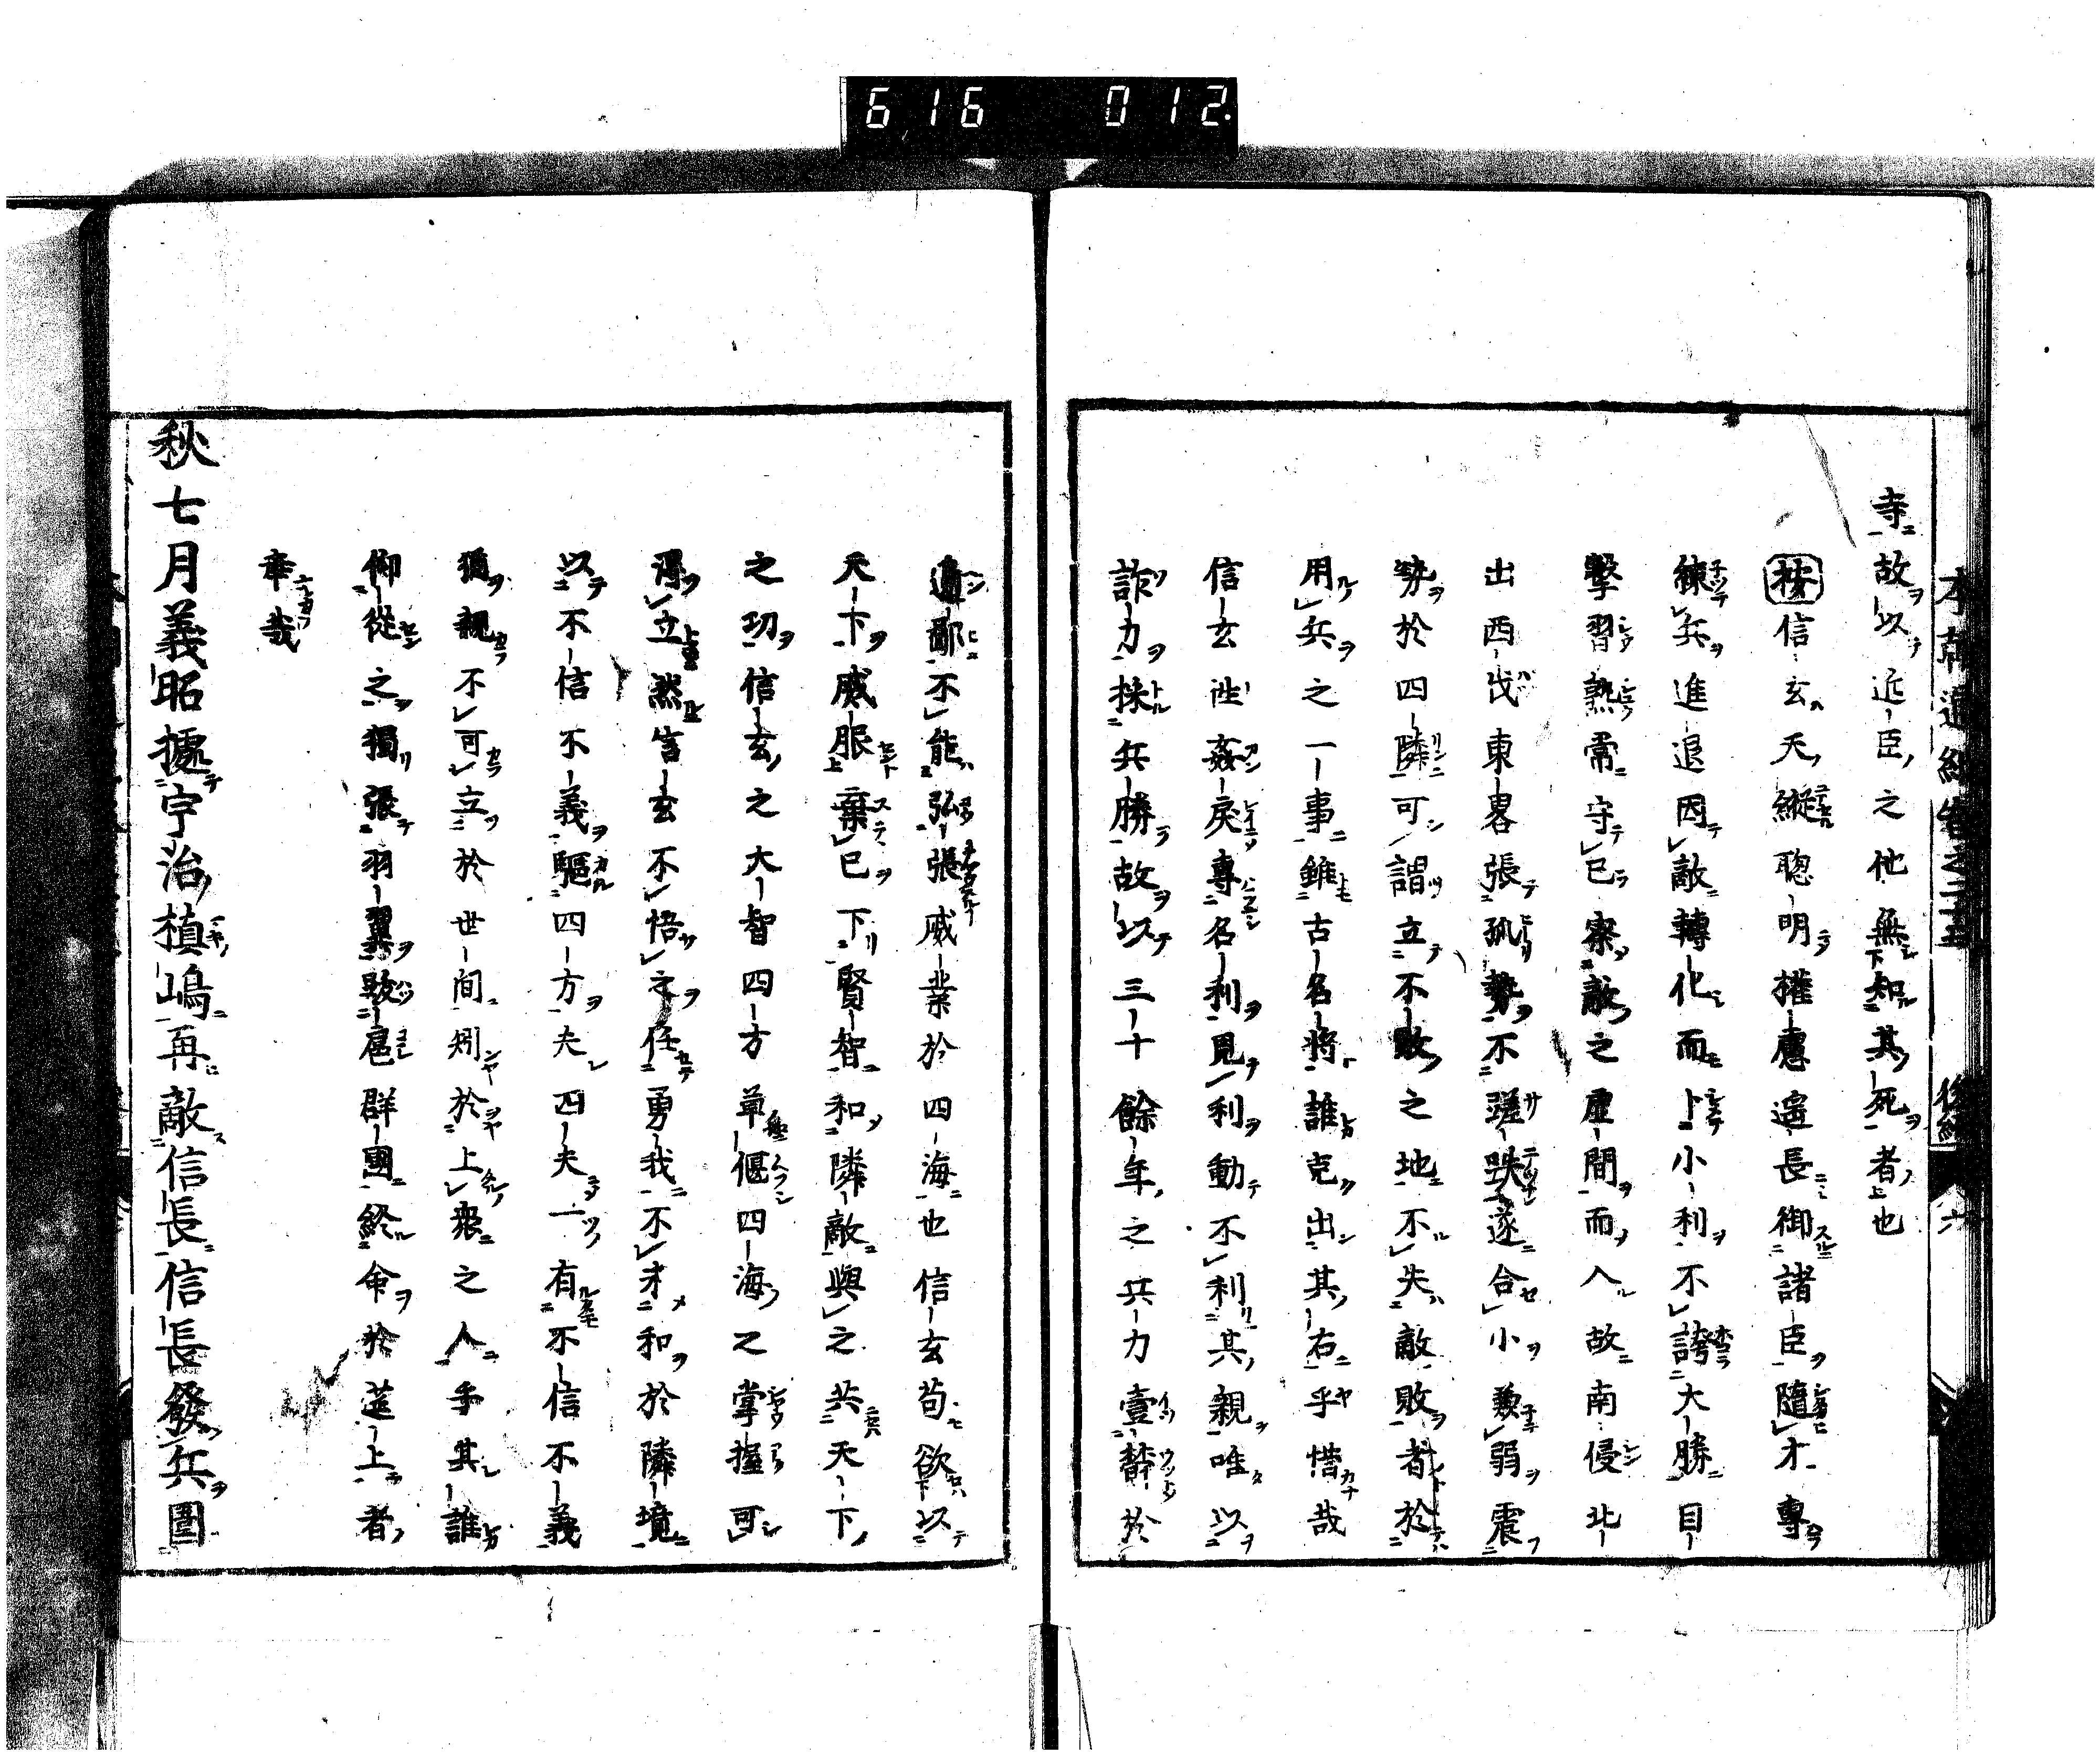 616 012
寺故以近臣之他無知其死者也
按信玄天縱聰明權慮遥長御諸臣隨才專
練兵進退因敵轉化而上小利不誇大勝目
擊習熟常守已察敵之虛間而入故南侵北
出西伐東畧張孤勢不蹉跌遂合小敷弱震
勢於四隣可謂立不敗之地不失敵敗者於
用兵之一事雖古名將誰克出其右乎惜哉
信玄性姦戾專名利見利動不利其親唯以
詐力採兵勝故以三十餘年之兵力壹欝於
邊鄙不能弘張威業於四海也信玄苟欲以
天下威服棄已下賢智和隣敵與之共天下
之功信玄之大智四方草偃四海之掌握可
得立然信玄不悟之任勇我不才和於隣境
以不信不義驅四方夫四夫一有不信不義
猶親不可立於世間矧於上衆之人乎其誰
仰從之獨張羽翼跋扈群國終命於莚上者
幸哉
秋七月義昭據宇治槙嶋再敵信長信長發兵圍